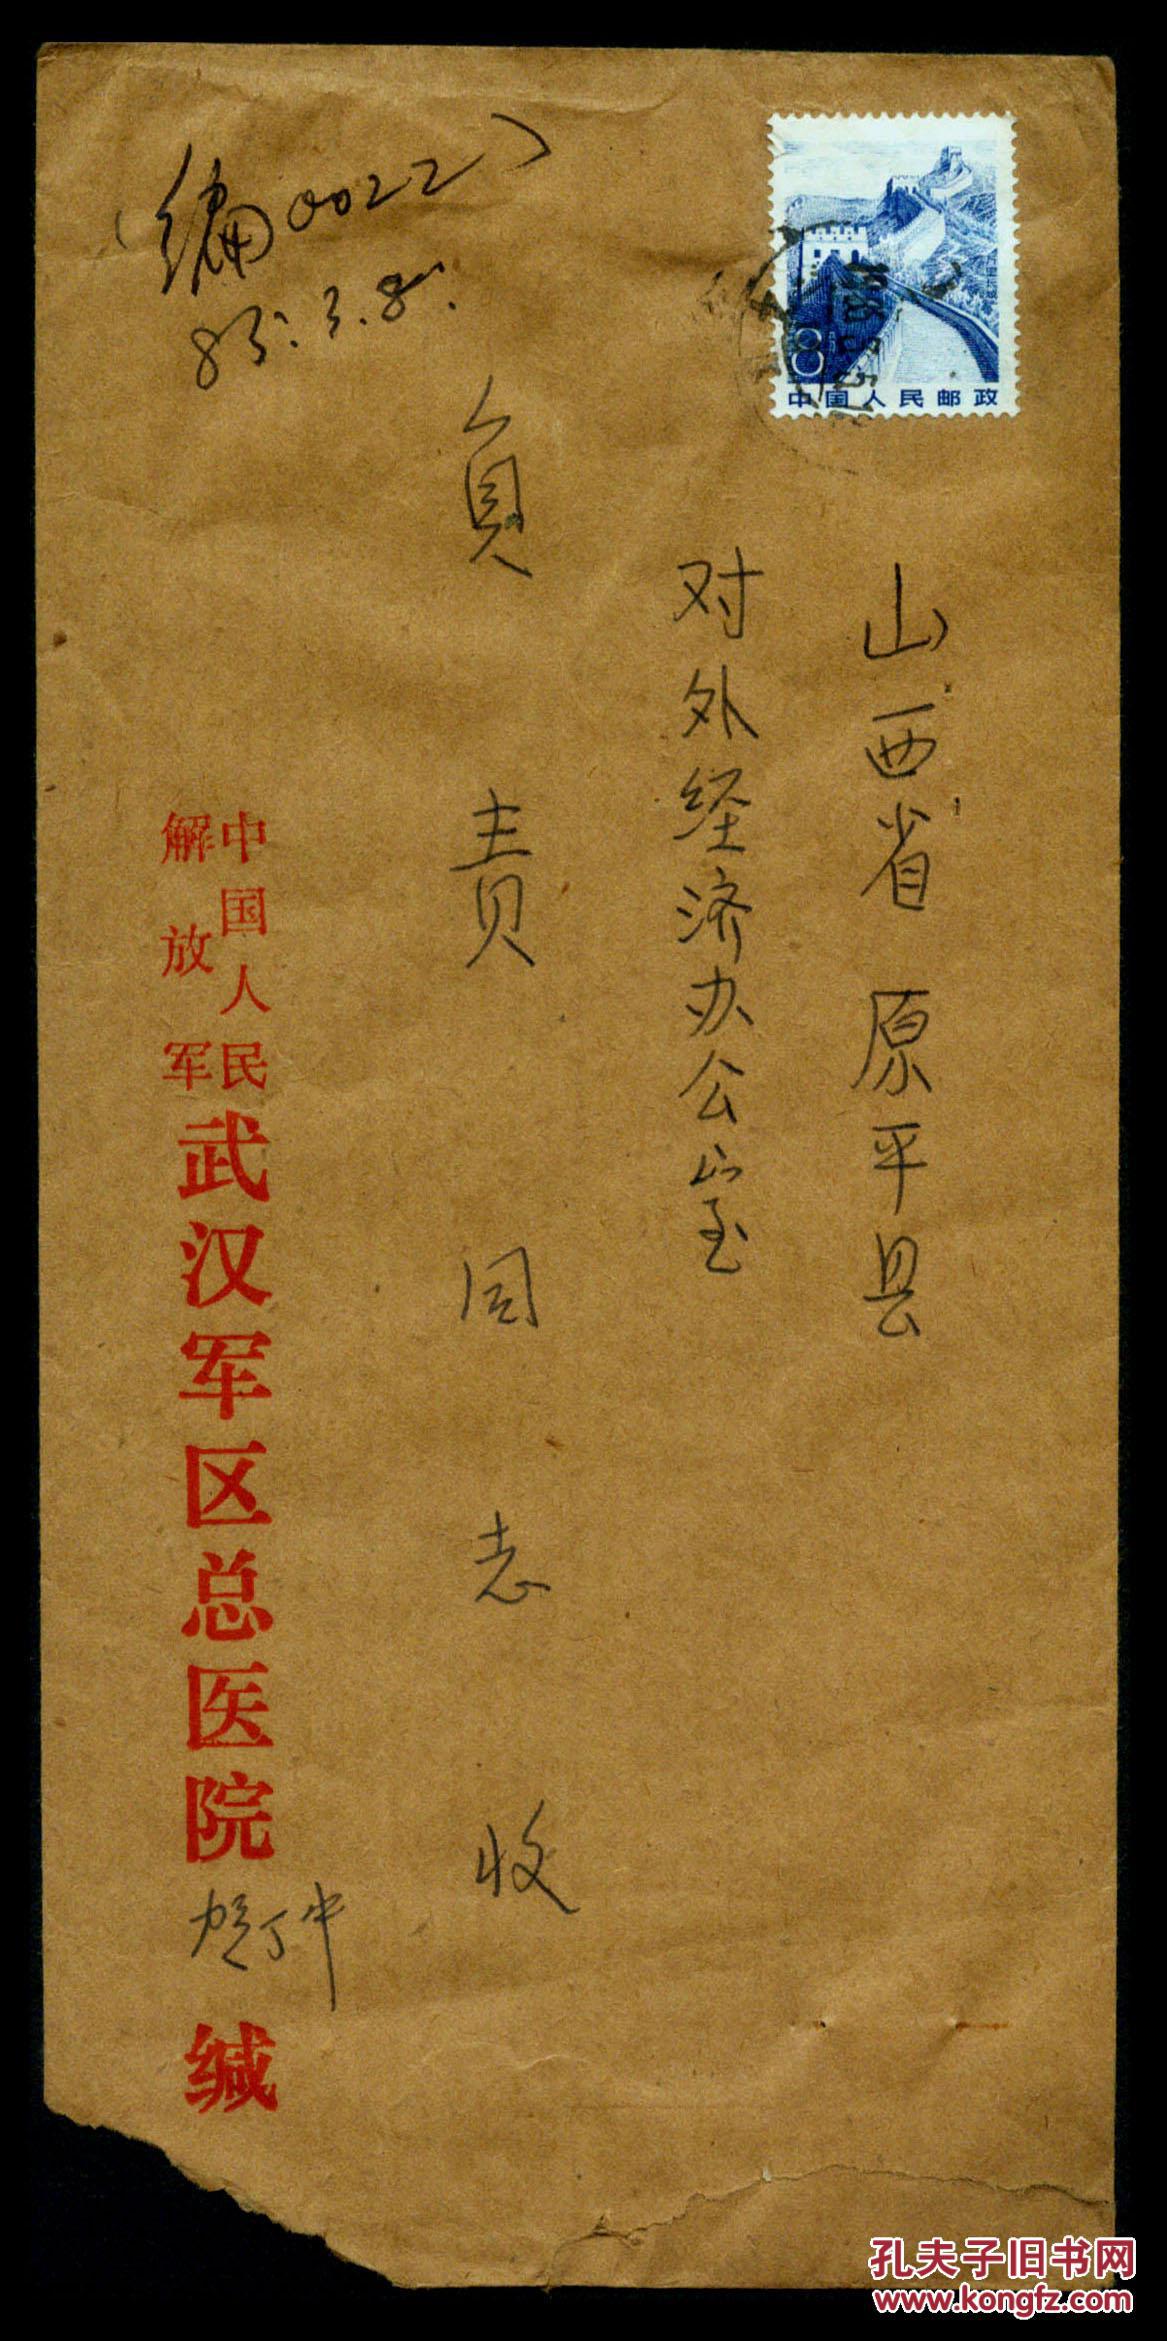 （编0022）
83.3.8.
8
中国人民邮政
山西省原平县
对外经济办公室
负责同志收
中国人民
解放军
武汉军区总医院
缄
孔夫子旧书网
www.kongfz.com